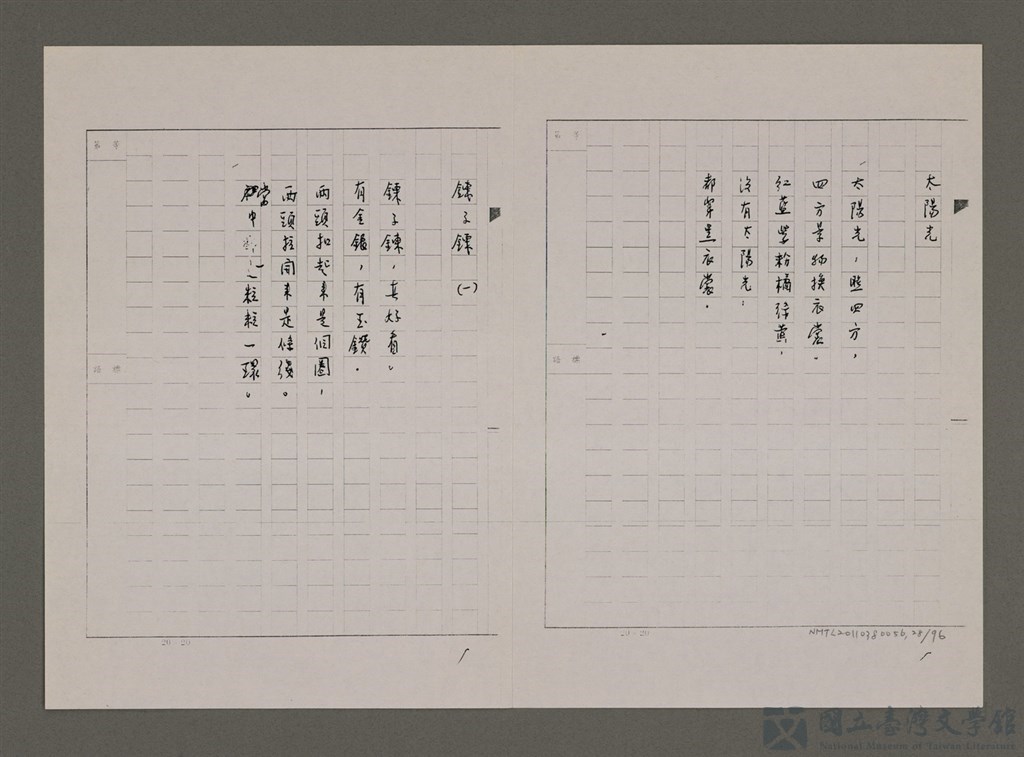 太陽光
太陽光，照四方，
四方景物換衣裳。
紅藍紫粉橘綠黃，
沒有太陽光：
都穿黑衣裳。
NMTL20110380056, 28/96
20×20
鍊子鍊 (一)
鍊子鍊，真好看。
有金鍊，有玉鑽。
兩頭扣起來是個圈，
兩頭拉開來是條線。
當中一粒粒一環。
20×20
國立臺灣文學館
National Museum of Taiwan Literature